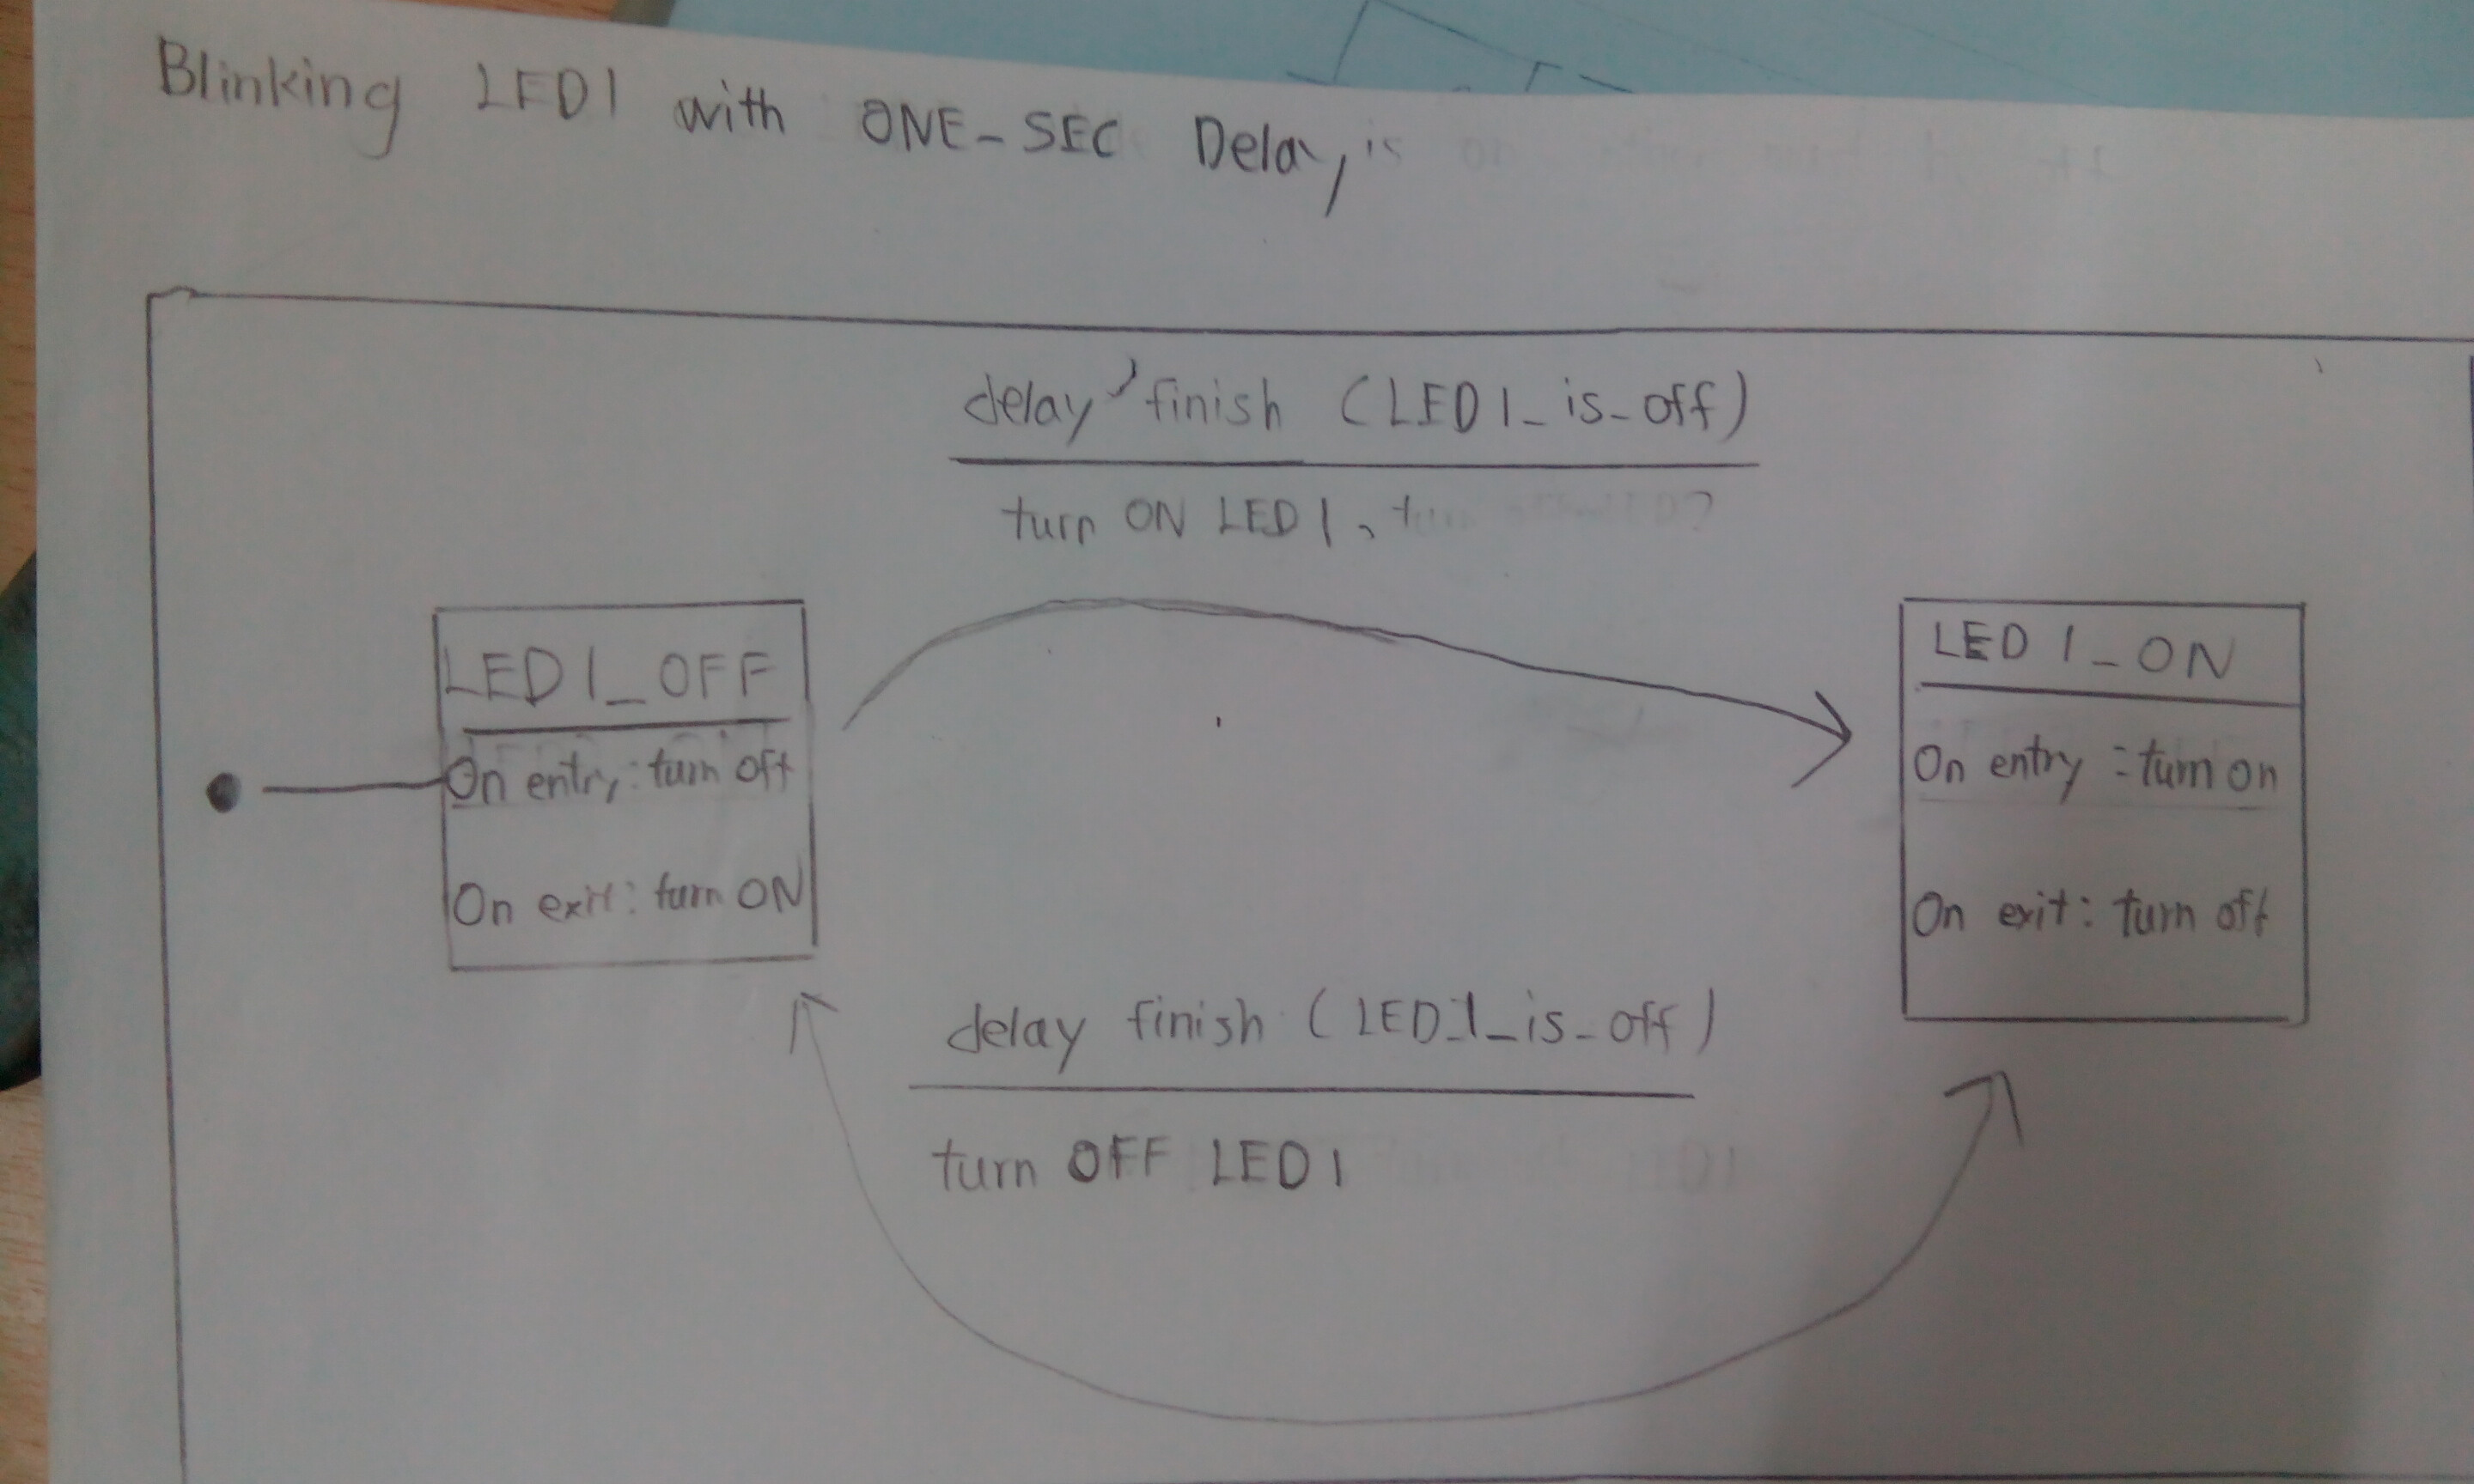 Blinking LED1 with ONE-SEC Delay
delay finish (LED1_is_off)
turn ON LED1,
LED1_OFF
On entry: turn off
On exit: turn ON
LED1_ON
On entry: turn on
On exit: turn off
delay finish (LED1_is_off)
turn OFF LED1